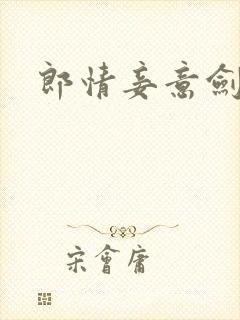 郎情妾意劍
宋會庸